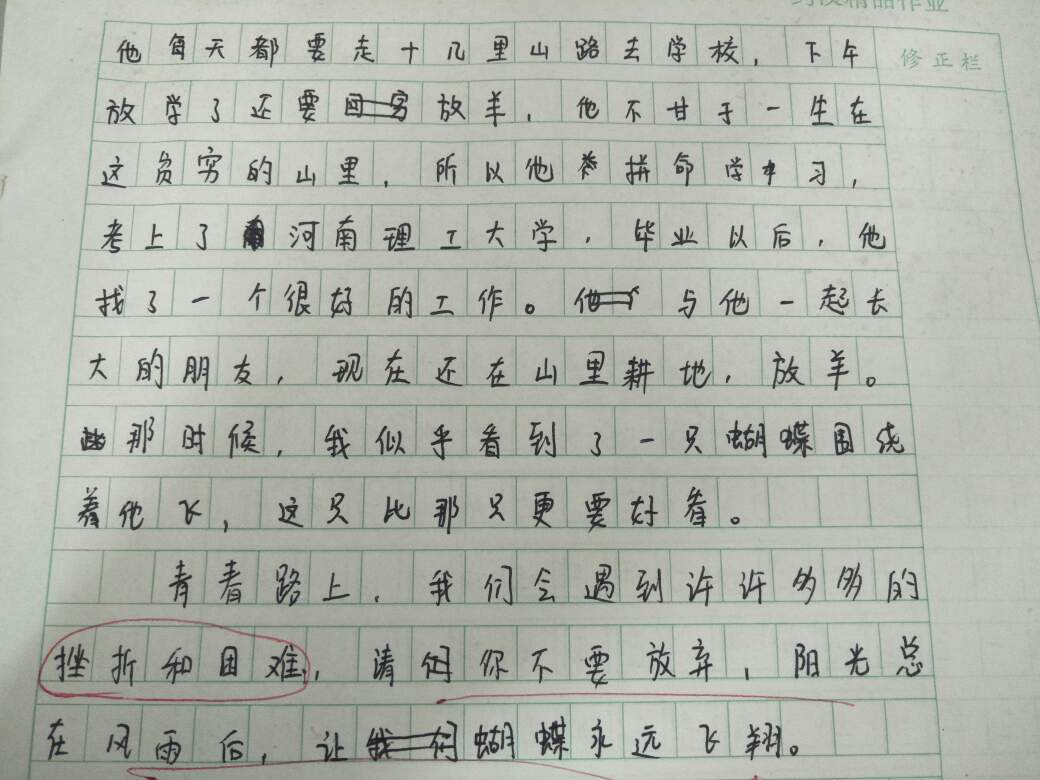 他每天都要走十几里山路去学校，下午
修正栏
放学了还要放羊，他不甘于一生在
这负穷的山里，所以他拼命学习，
考上了河南理工大学，毕业以后，他
找了一个很好的工作。与他一起长
大的朋友，现在还在山里耕地，放羊。
那时候，我似乎看到了一只蝴蝶围绕
着他飞，这只比那只更要好看。
青春路上，我们会遇到许许多多的
挫折和困难，请你不要放弃，阳光总
在风雨后，让蝴蝶永远飞翔。